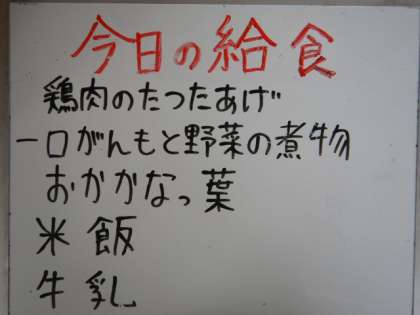 今日の給食
鶏肉のたつたあげ
一口がんもと野菜の煮物
おかかなっ葉
米飯
牛乳